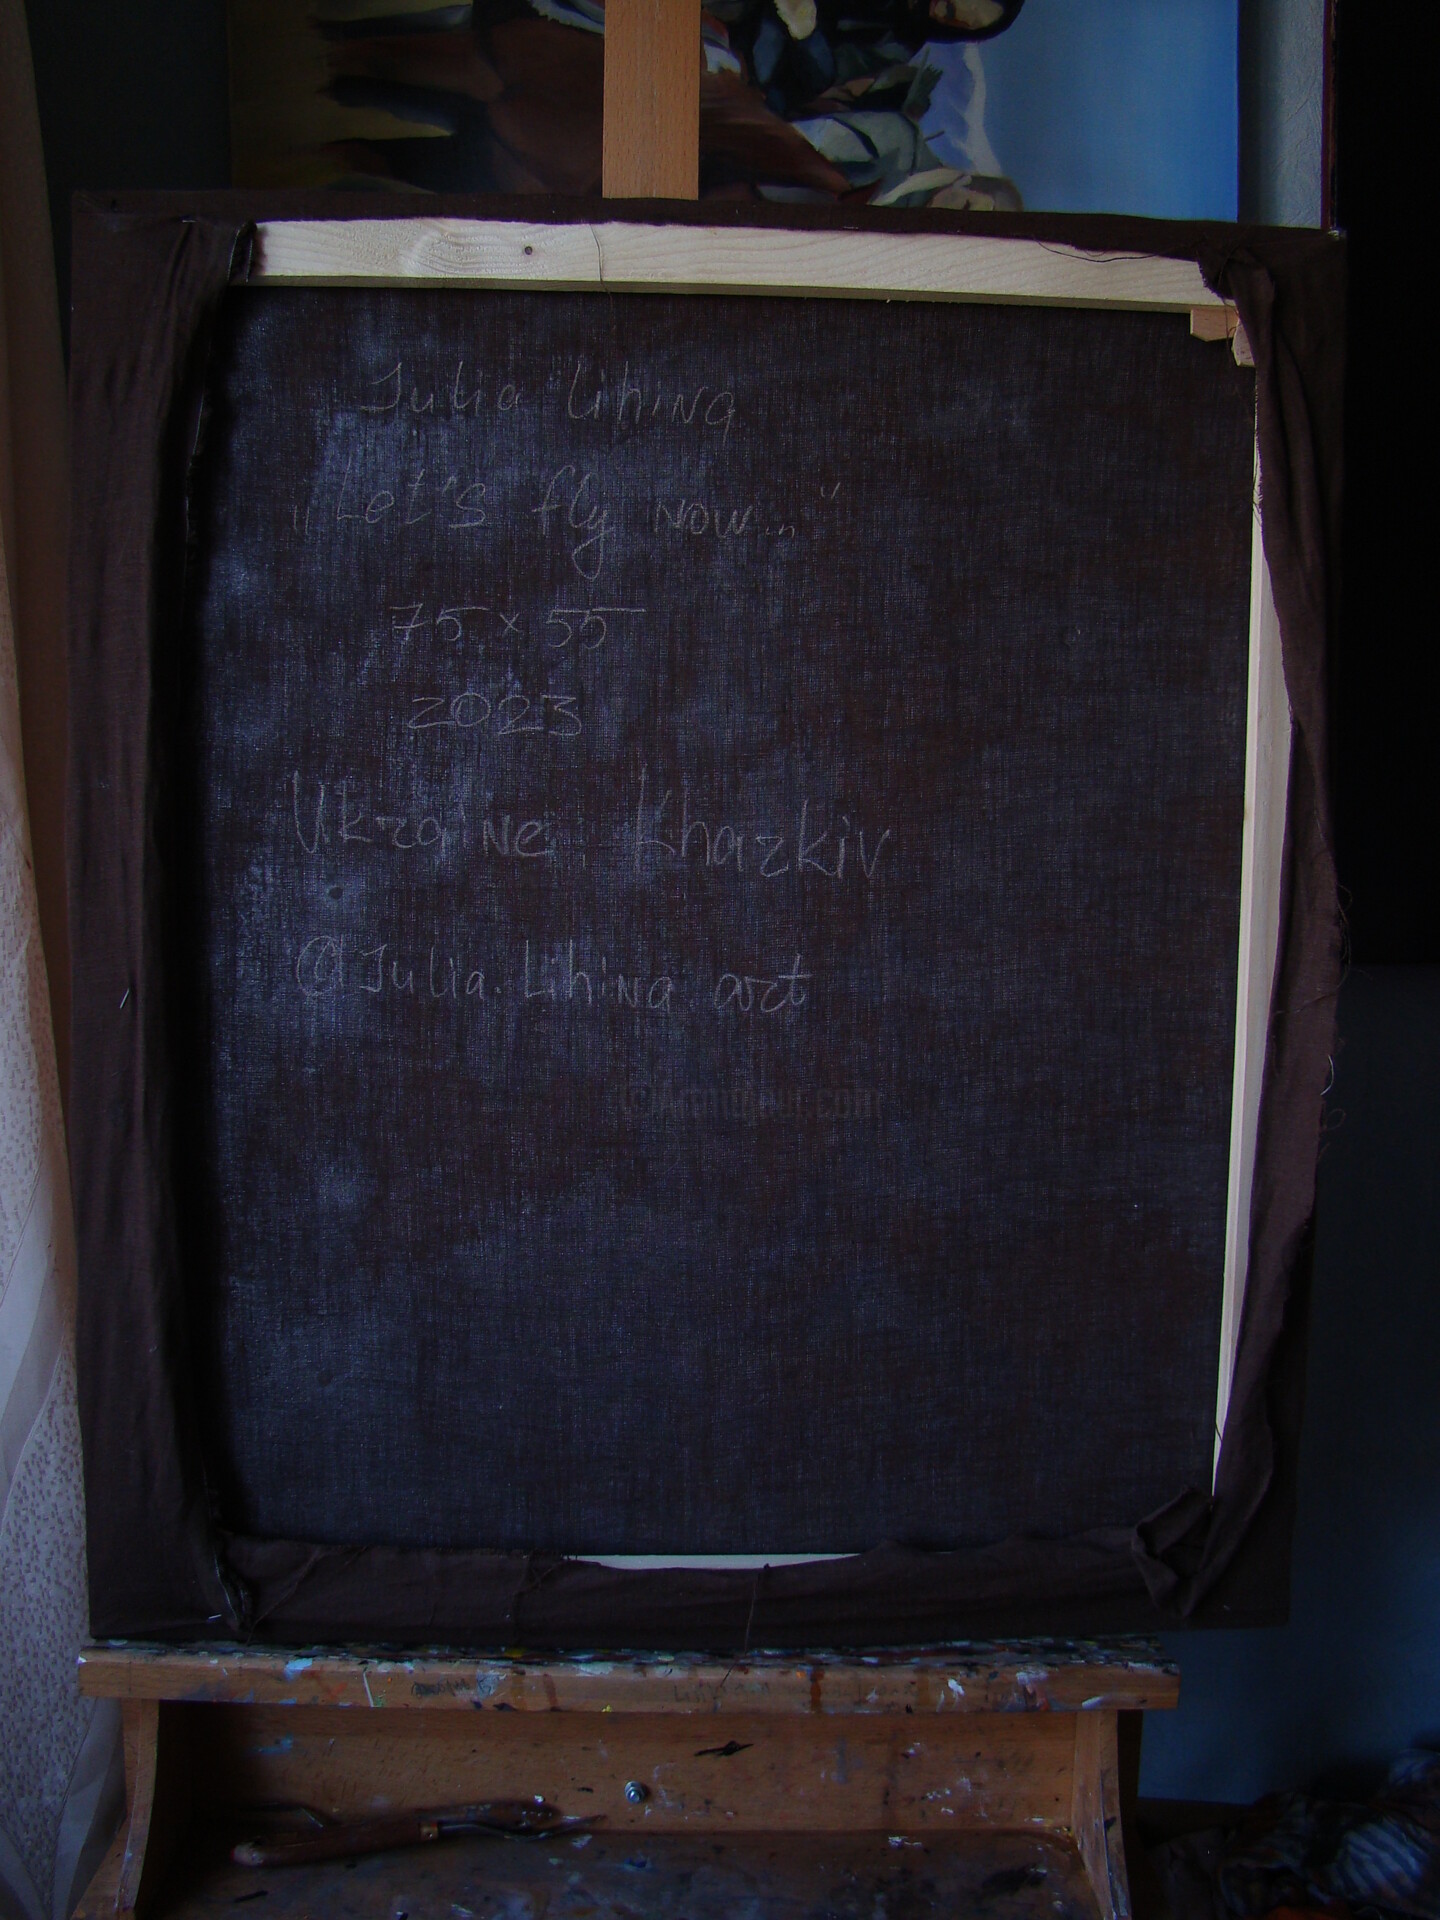 Julia Lihina
„Let's fly now..."
75 x 55
2023
Ukraine Kharkiv
@Julia.Lihina.art
©Artmajeur.com